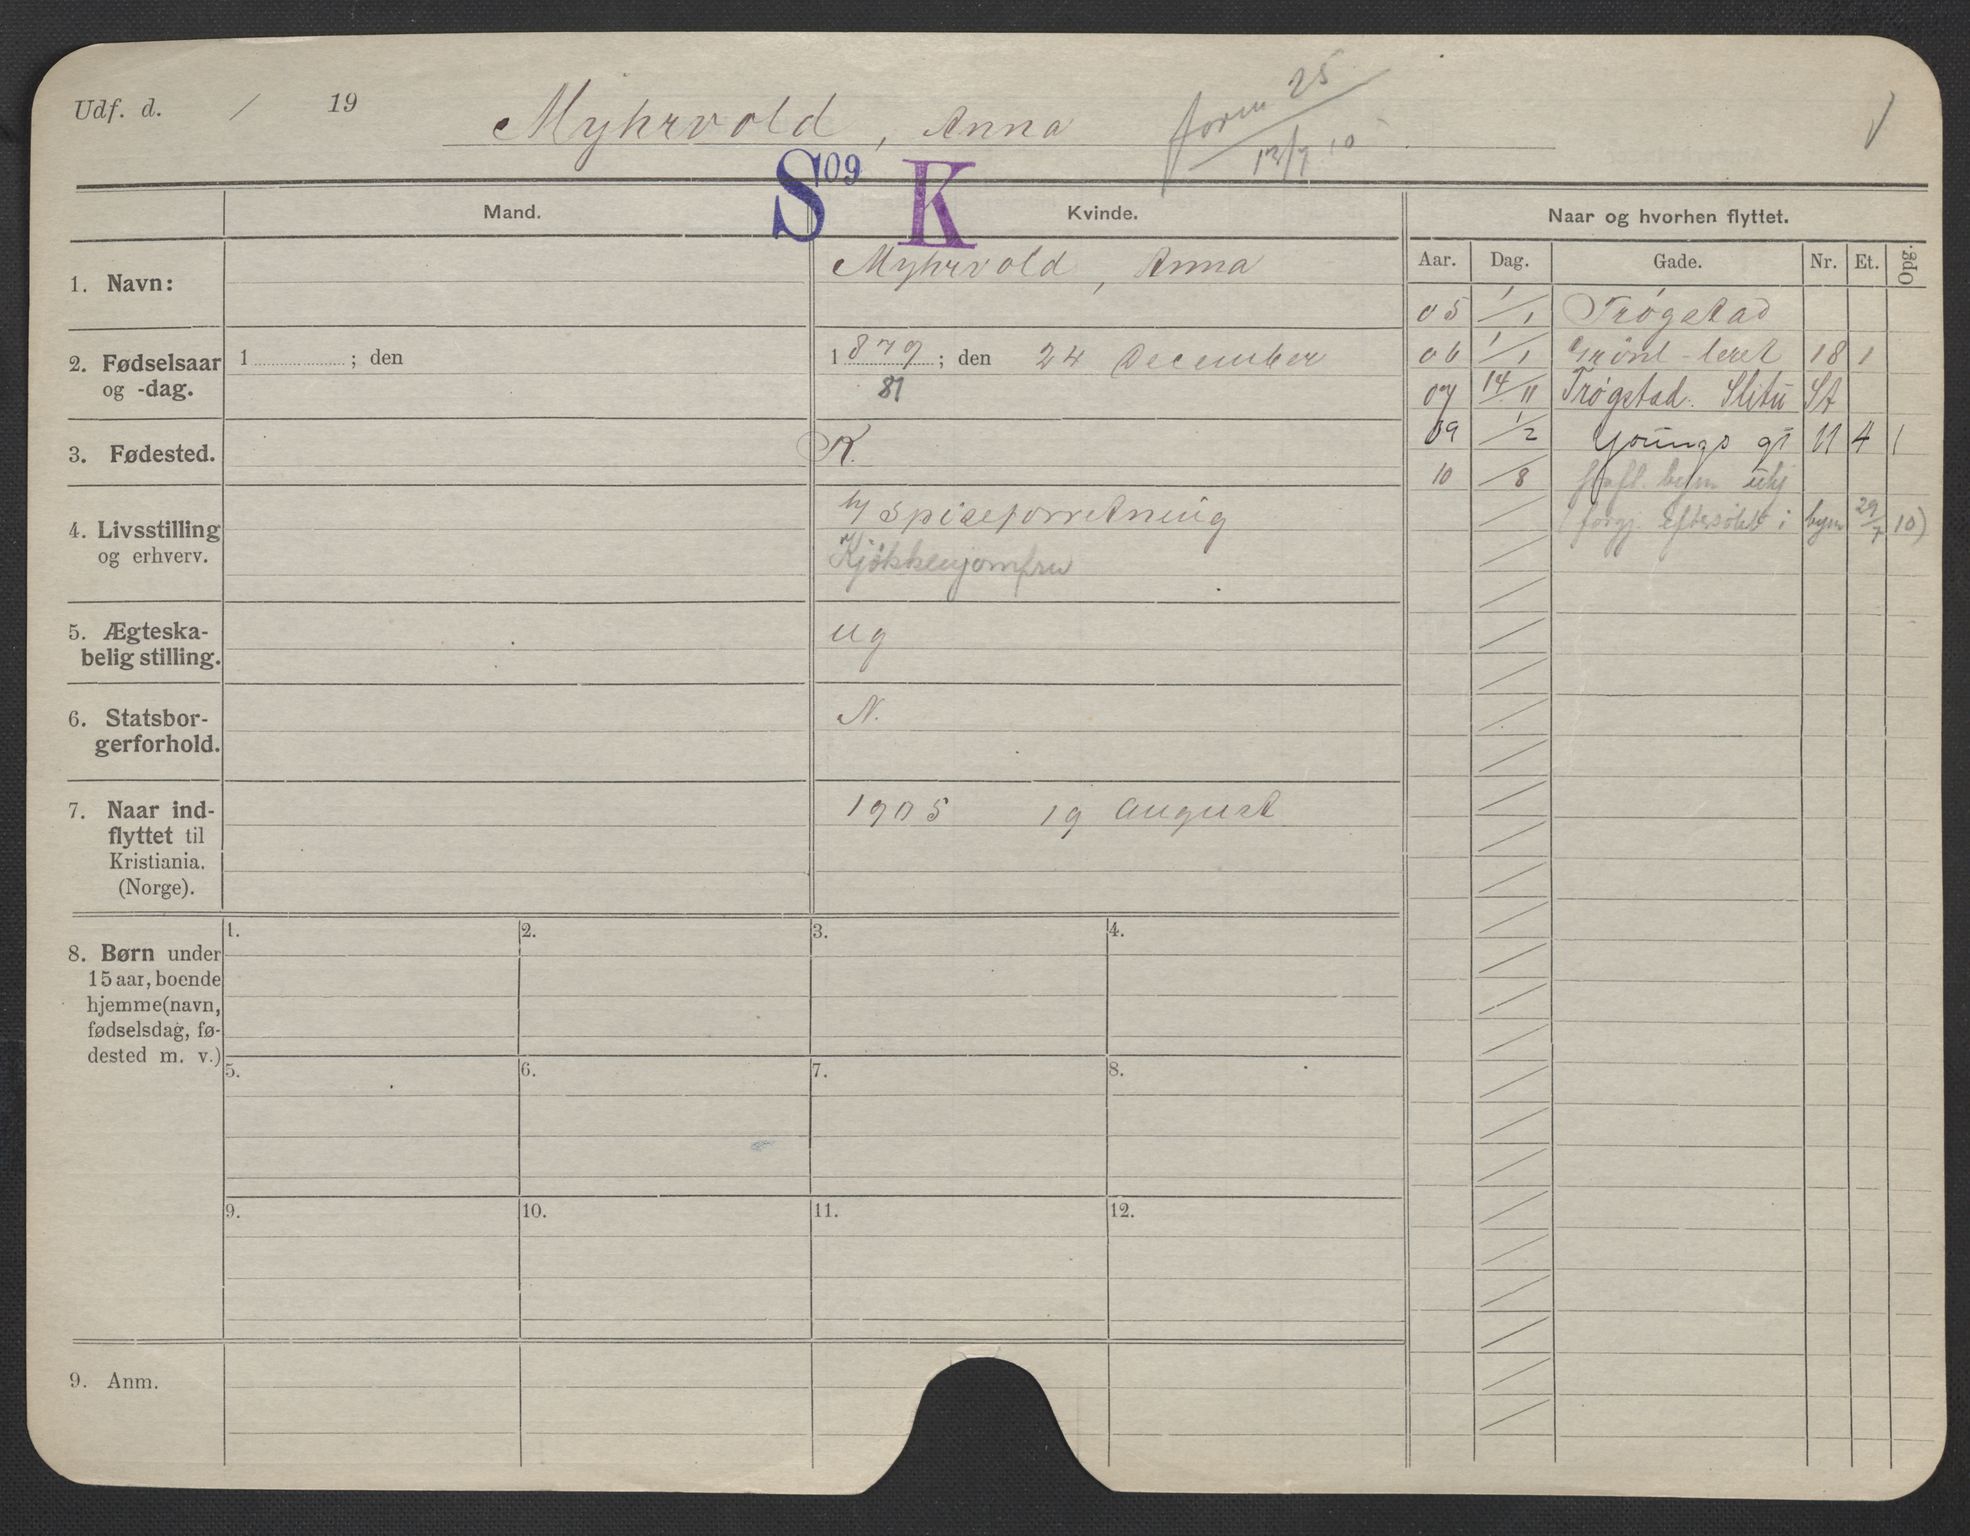 Udf. d. / 19
Myhrvold, Anna
form 25
13/7 10
S09 K
Mand.
Kvinde.
Naar og hvorhen flyttet.
Aar. Dag. Gade. Nr. Et. Opg.
1. Navn:
Myhrvold, Anna
2. Fødselsaar og -dag.
1 ; den
1 879 ; den 24 December
81
3. Fødested.
K.
4. Livsstilling og erhverv.
h/ Spiseforretning
Kjøkkenjomfru
5. Ægteska-
belig stilling.
ug
6. Statsbor-
gerforhold.
N.
7. Naar ind-
flyttet til
Kristiania.
(Norge).
1905 19 August
8. Børn under
15 aar, boende
hjemme (navn,
fødselsdag, fø-
dested m. v.)
1. 2. 3. 4.
5. 6. 7. 8.
9. 10. 11. 12.
9. Anm.
05 1/1 Trøgstad
06 1/1 Grønl-leret 18 1
07 14/11 Trøgstad. Slitu St
09 1/2 Youngs gt 11 4 1
10 /8 byen ukj
(forgj. eftersøkt i byen 29/7 10)